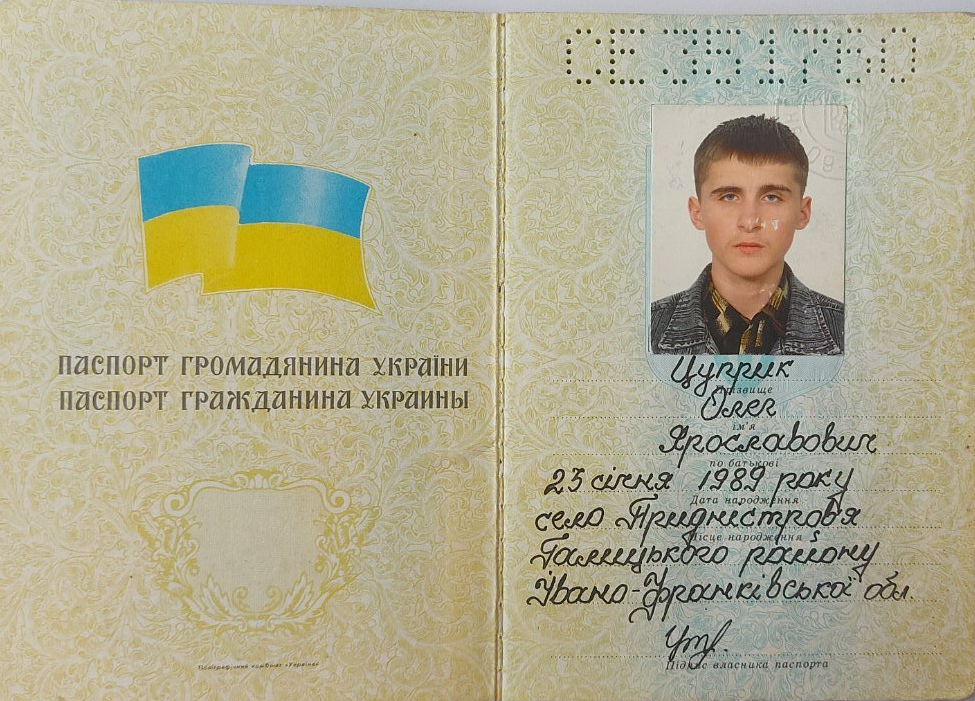 ПАСПОРТ ГРОМАДЯНИНА УКРАЇНИ
ПАСПОРТ ГРАЖДАНИНА УКРАИНЫ
Поліграфічний комбінат «Україна»
СЕ 351760
Цуприк
Прізвище
Олег
ім'я
Ярославович
по батькові
23 січня 1989 року
Дата народження
село Придністров'я
Місце народження
Галицького району
Івано-Франківської обл.
Підпис власника паспорта